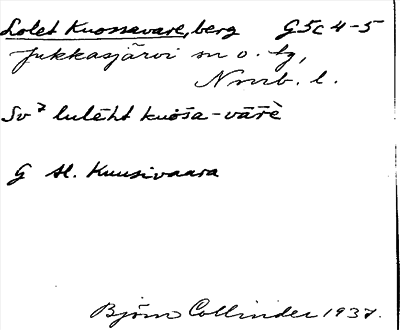 Lolet Kuossavare, berg G5c 4-5
Jukkasjärvi sn o. tg,
Nrrb. l.
Sv⁷ luleht kuossa-vārrē
G st. Kuusivaara
Björn Collinder 1937.